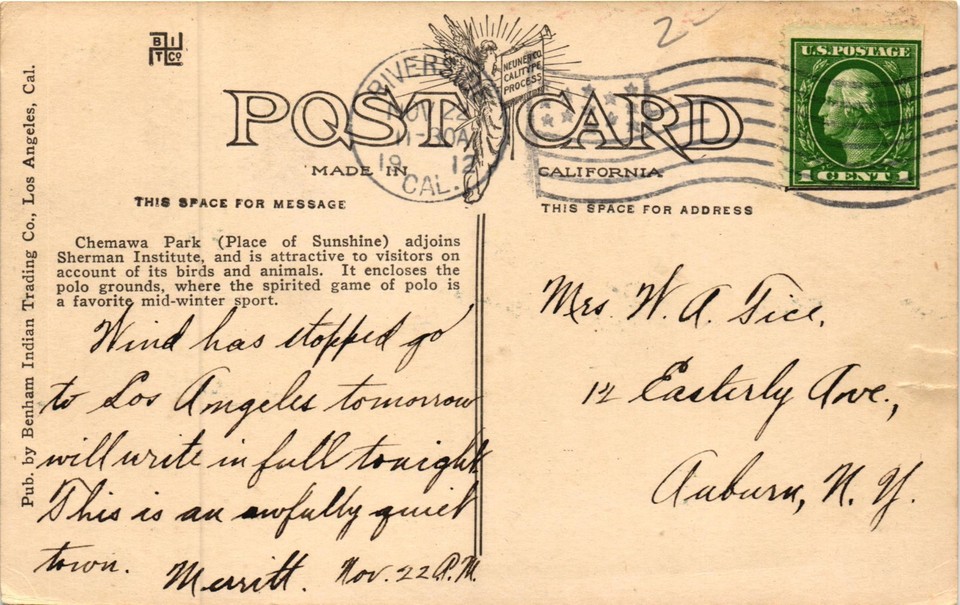 BI
TCo
2
NEUNER CO.
CALITYPE
PROCESS
U.S.POSTAGE
1 CENT 1
RIVERSIDE
NOV 22
11-30A
1912
CAL.
POST CARD
MADE IN CALIFORNIA
THIS SPACE FOR MESSAGE
THIS SPACE FOR ADDRESS
Pub. by Benham Indian Trading Co., Los Angeles, Cal.
Chemawa Park (Place of Sunshine) adjoins
Sherman Institute, and is attractive to visitors on
account of its birds and animals. It encloses the
polo grounds, where the spirited game of polo is
a favorite mid-winter sport.
Wind has stopped go
to Los Angeles tomorrow
will write in full tonight
This is an awfully quiet
town. Merritt. Nov. 22 P.M.
Mrs. W. A. Tice,
12 Easterly Ave.,
Auburn, N. Y.